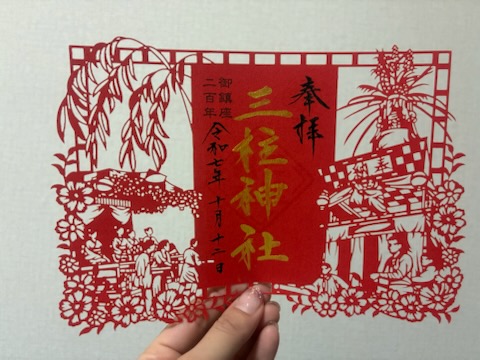 奉拝
三柱神社
御鎮座
二百年
令和七年十月十二日